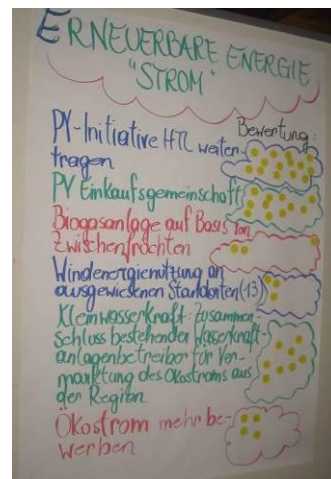 ERNEUERBARE ENERGIE
"STROM"
Bewertung:
PV-Initiative HTL weiter-
tragen
PV Einkaufsgemeinschaft
Biogasanlage auf Basis von
Zwischenfrüchten
Windenergienutzung an
ausgewiesenen Standorten (13)
Kleinwasserkraft: Zusammen-
schluss bestehender Wasserkraft-
anlagenbetreiber für Ver-
marktung des Ökostroms aus
der Region
Ökostrom mehr be-
werben